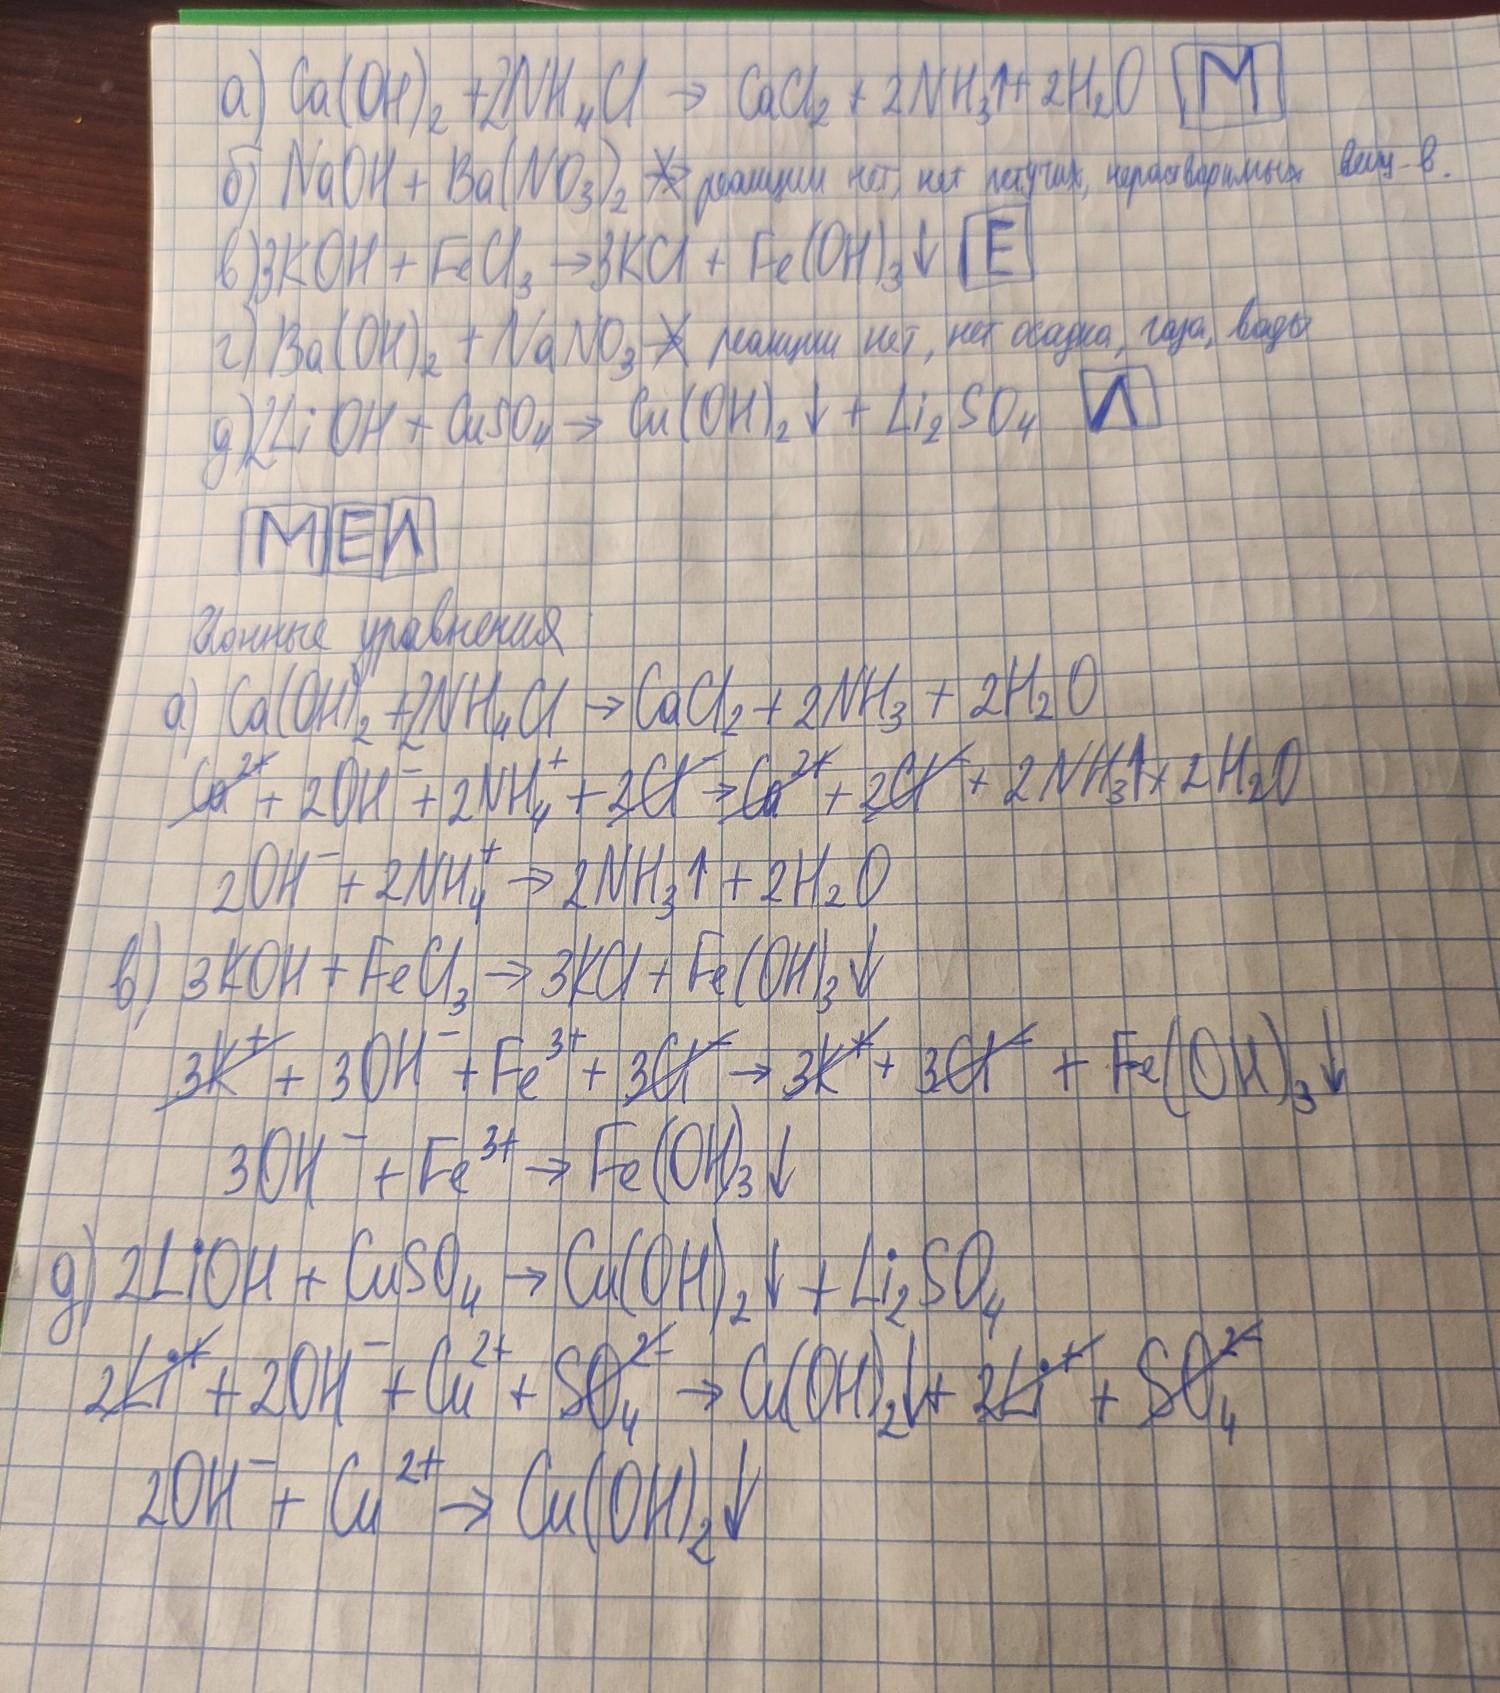 а) Ca(OH)₂ + 2NH₄Cl → CaCl₂ + 2NH₃↑ + 2H₂O М
б) NaOH + Ba(NO₃)₂ ↛ реакции нет, нет летучих, нерастворимых вещ-в.
в) 3KOH + FeCl₃ → 3KCl + Fe(OH)₃↓ Е
г) Ba(OH)₂ + NaNO₃ ↛ реакции нет, нет осадка, газа, воды
д) 2LiOH + CuSO₄ → Cu(OH)₂↓ + Li₂SO₄ Л
МЕЛ
Ионные уравнения
а) Ca(OH)₂ + 2NH₄Cl → CaCl₂ + 2NH₃ + 2H₂O
Ca²⁺ + 2OH⁻ + 2NH₄⁺ + 2Cl⁻ → Ca²⁺ + 2Cl⁻ + 2NH₃↑ + 2H₂O
2OH⁻ + 2NH₄⁺ → 2NH₃↑ + 2H₂O
в) 3KOH + FeCl₃ → 3KCl + Fe(OH)₃↓
3K⁺ + 3OH⁻ + Fe³⁺ + 3Cl⁻ → 3K⁺ + 3Cl⁻ + Fe(OH)₃↓
3OH⁻ + Fe³⁺ → Fe(OH)₃↓
д) 2LiOH + CuSO₄ → Cu(OH)₂↓ + Li₂SO₄
2Li⁺ + 2OH⁻ + Cu²⁺ + SO₄²⁻ → Cu(OH)₂↓ + 2Li⁺ + SO₄²⁻
2OH⁻ + Cu²⁺ → Cu(OH)₂↓